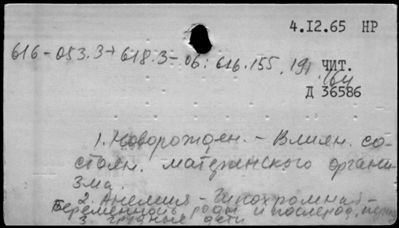 4.I2.65 НР
616-053.3+618.3-06:616.155.191
ЧИТ.
Д 36586
1. Новорожден. - Влиян. со-
стоян. материнского органи-
зма.
2. Анемия - Гипохромная -
Беременность роды и послерод.
3. Грудные дети